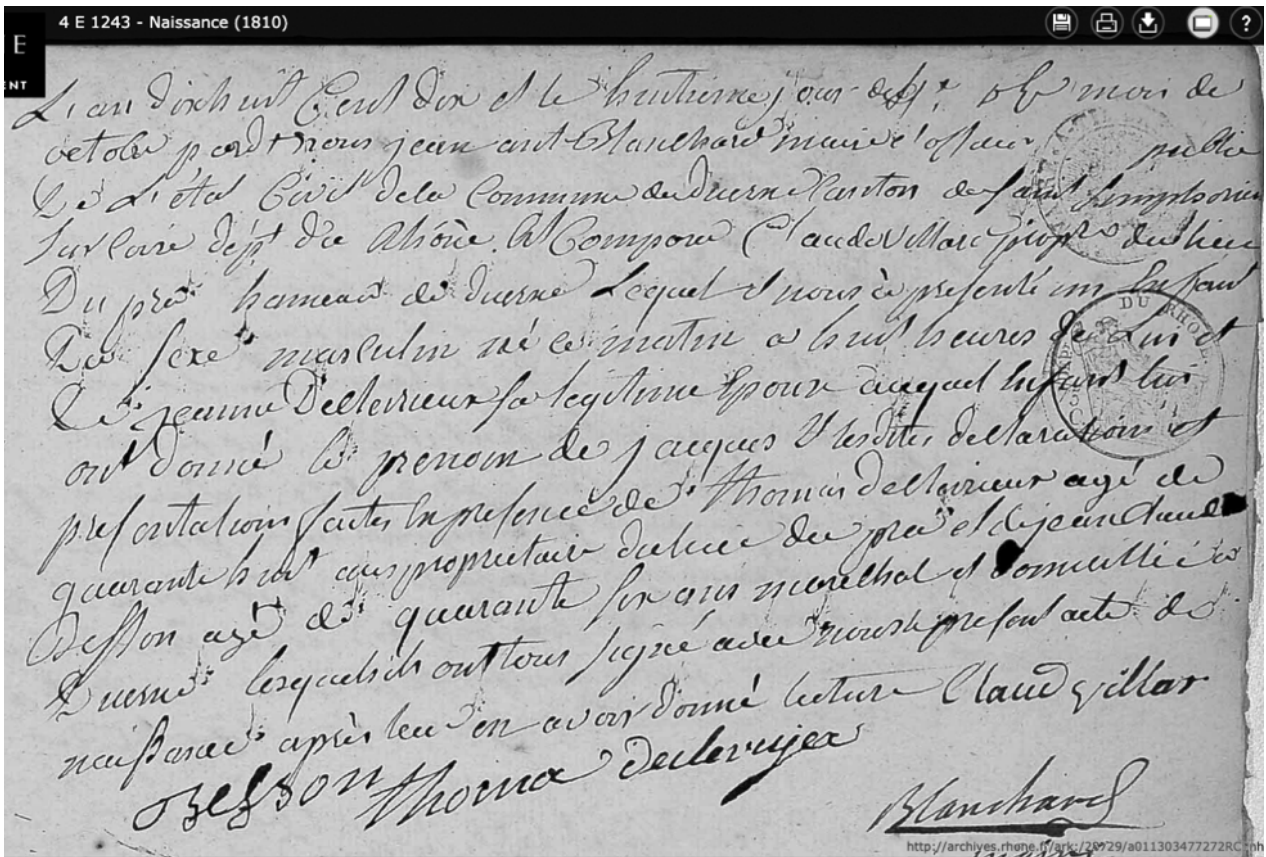 4 E 1243 - Naissance (1810)
E
ENT
L'an dixhuit Cent dix et le huitieme jour du mois de
octobre pardt nous jean ant Blanchard maire e officier public
De L'état Civil dela Commune de duerne Canton de saint Simphorien
Sur Coire dépt du Rhône. At Comparu Claude Villard propre du lieu
Du pré hameau de duerne Lequel nous à presenté un Enfant
Du sexe masculin né ce matin a huit heures de Lui et
De jeanne Dellevieux sa legitime Epouse auquel Enfant lui
ont donné le prenom de jacques lesdites declarations et
presentations faites En presence de thomas dellevieux agé de
quarante huit ans proprietaire dulieu du pré et de jean Claude
Besson agé de quarante six ans marechal et domicillié à
Duerne lesquels ils ont tous signé avec nous le present acte de
naissance après leur en avoir donné lecture Claud villar
Besson thoma declerieux
Blanchard
maire
DU RHONE
http://archives.rhone.fr/ark:/28729/a011303477272RC